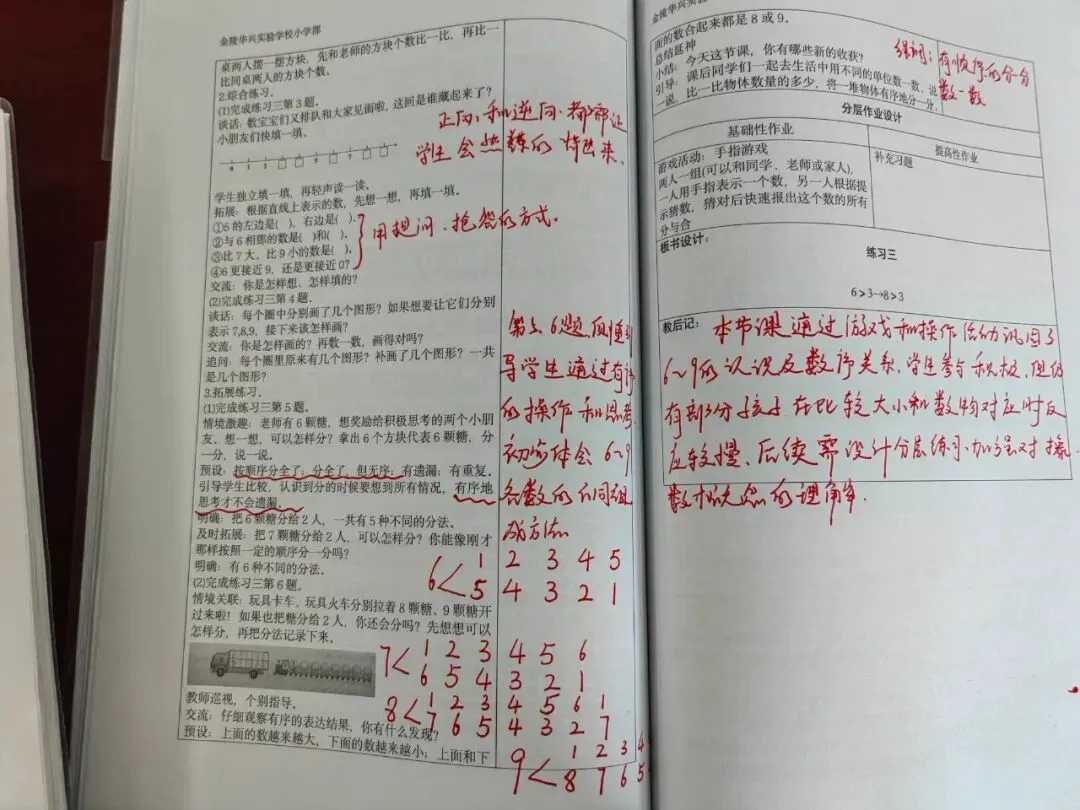 金陵华兴实验学校小学部
桌两人摆一摆方块，先和老师的方块个数比一比，再比一
比同桌两人的方块个数。
2.综合练习。
(1)完成练习三第3题。
谈话：数宝宝们又排队和大家见面啦，这回是谁藏起来了？
小朋友们快填一填。
正向、和逆向、都都让
学生会熟练的填出来、
0 1 2 5 7
学生独立填一填，再轻声读一读。
拓展：根据直线上表示的数，先想一想，再填一填。
①5的左边是( )，右边是( )。
②与6相邻的数是( )和( )。
③比7大、比9小的数是( )。
④6更接近9，还是更接近0？
用提问、抢答的方式.
交流：你是怎样想、怎样填的？
(2)完成练习三第4题。
谈话：每个圈中分别画了几个图形？如果想要让它们分别
表示7,8,9，接下来该怎样画？
交流：你是怎样画的？再数一数，画得对吗？
追问：每个圈里原来有几个图形？补画了几个图形？一共
是几个图形？
3.拓展练习。
(1)完成练习三第5题。
情境激趣：老师有6颗糖，想奖励给积极思考的两个小朋
友。想一想，可以怎样分？拿出6个方块代表6颗糖，分
一分，说一说。
预设：按顺序分全了；分全了，但无序；有遗漏；有重复。
引导学生比较，认识到分的时候要想到所有情况，有序地
思考才不会遗漏。
明确：把6颗糖分给2人，一共有5种不同的分法。
及时拓展：把7颗糖分给2人，可以怎样分？你能像刚才
那样按照一定的顺序分一分吗？
明确：有6种不同的分法。
(2)完成练习三第6题。
情境关联：玩具卡车、玩具火车分别拉着8颗糖、9颗糖开
过来啦！如果也把糖分给2人，你还会分吗？先想想可以
怎样分，再把分法记录下来。
教师巡视，个别指导。
交流：仔细观察有序的表达结果，你有什么发现？
预设：上面的数越来越大，下面的数越来越小；上面和下
第5、6题,应重引
导学生通过有序
的操作和思考
初步体会6~9
各数的不同组
成方法
6< 1 2 3 4 5
5 4 3 2 1
7< 1 2 3 4 5 6
6 5 4 3 2 1
8< 1 2 3 4 5 6 1
7 6 5 4 3 2 7
9< 1 2 3 4
8 7 6 5
金陵华兴实验
面的数合起来都是8或9。
总结延伸
小结：今天这节课，你有哪些新的收获？
引导：课后同学们一起去生活中用不同的单位数一数、说
一说，比一比物体数量的多少，将一堆物体有序地分一分。
有顺序的分一分
数一数
分层作业设计
基础性作业
提高性作业
游戏活动：手指游戏
两人一组(可以和同学、老师或家人)，
一人用手指表示一个数，另一人根据提
示猜数，猜对后快速报出这个数的所有
分与合
补充习题
板书设计：
练习三
6＞3→8＞3
教后记：
本节课通过游戏和操作活动巩固了
6~9的认识及数序关系、学生参与积极,但仍
有部分孩子在比较大小和数物对应时反
应较慢、后续需设计分层练习、加强对
数概念的理解.